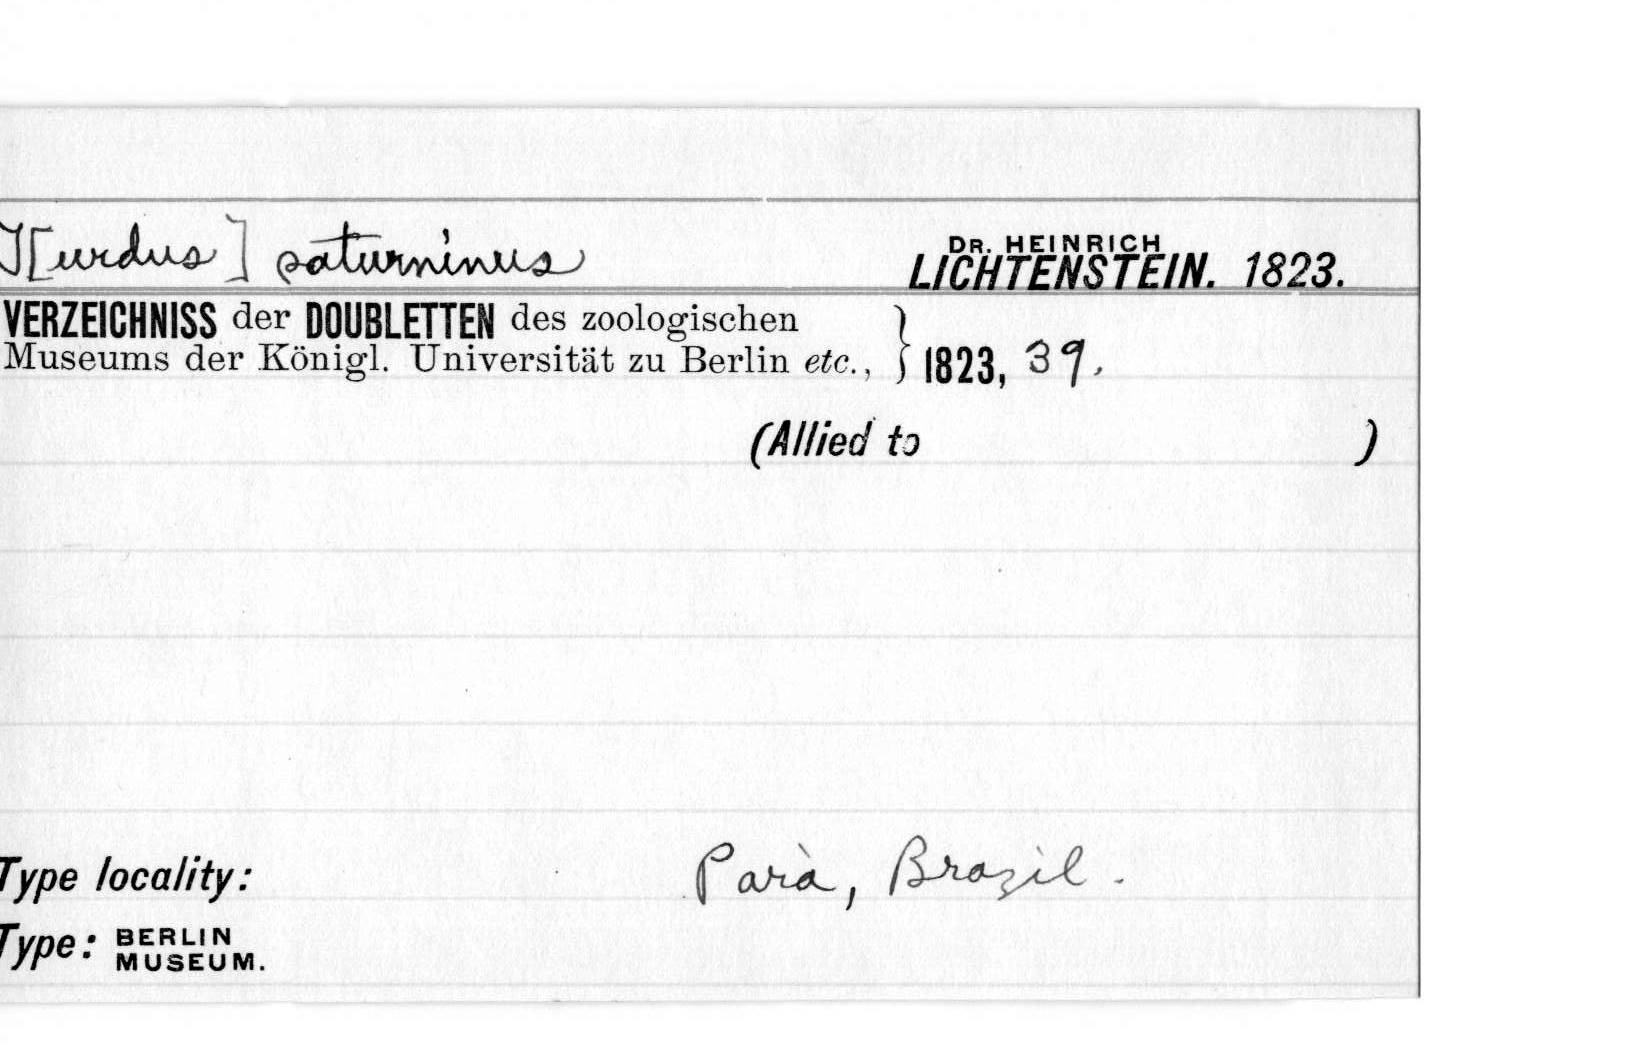 T[urdus] saturninus
DR. HEINRICH
LICHTENSTEIN. 1823.
VERZEICHNISS der DOUBLETTEN des zoologischen
Museums der Königl. Universität zu Berlin etc., } 1823, 39.
(Allied to )
Type locality: Parà, Brazil.
Type: BERLIN
MUSEUM.